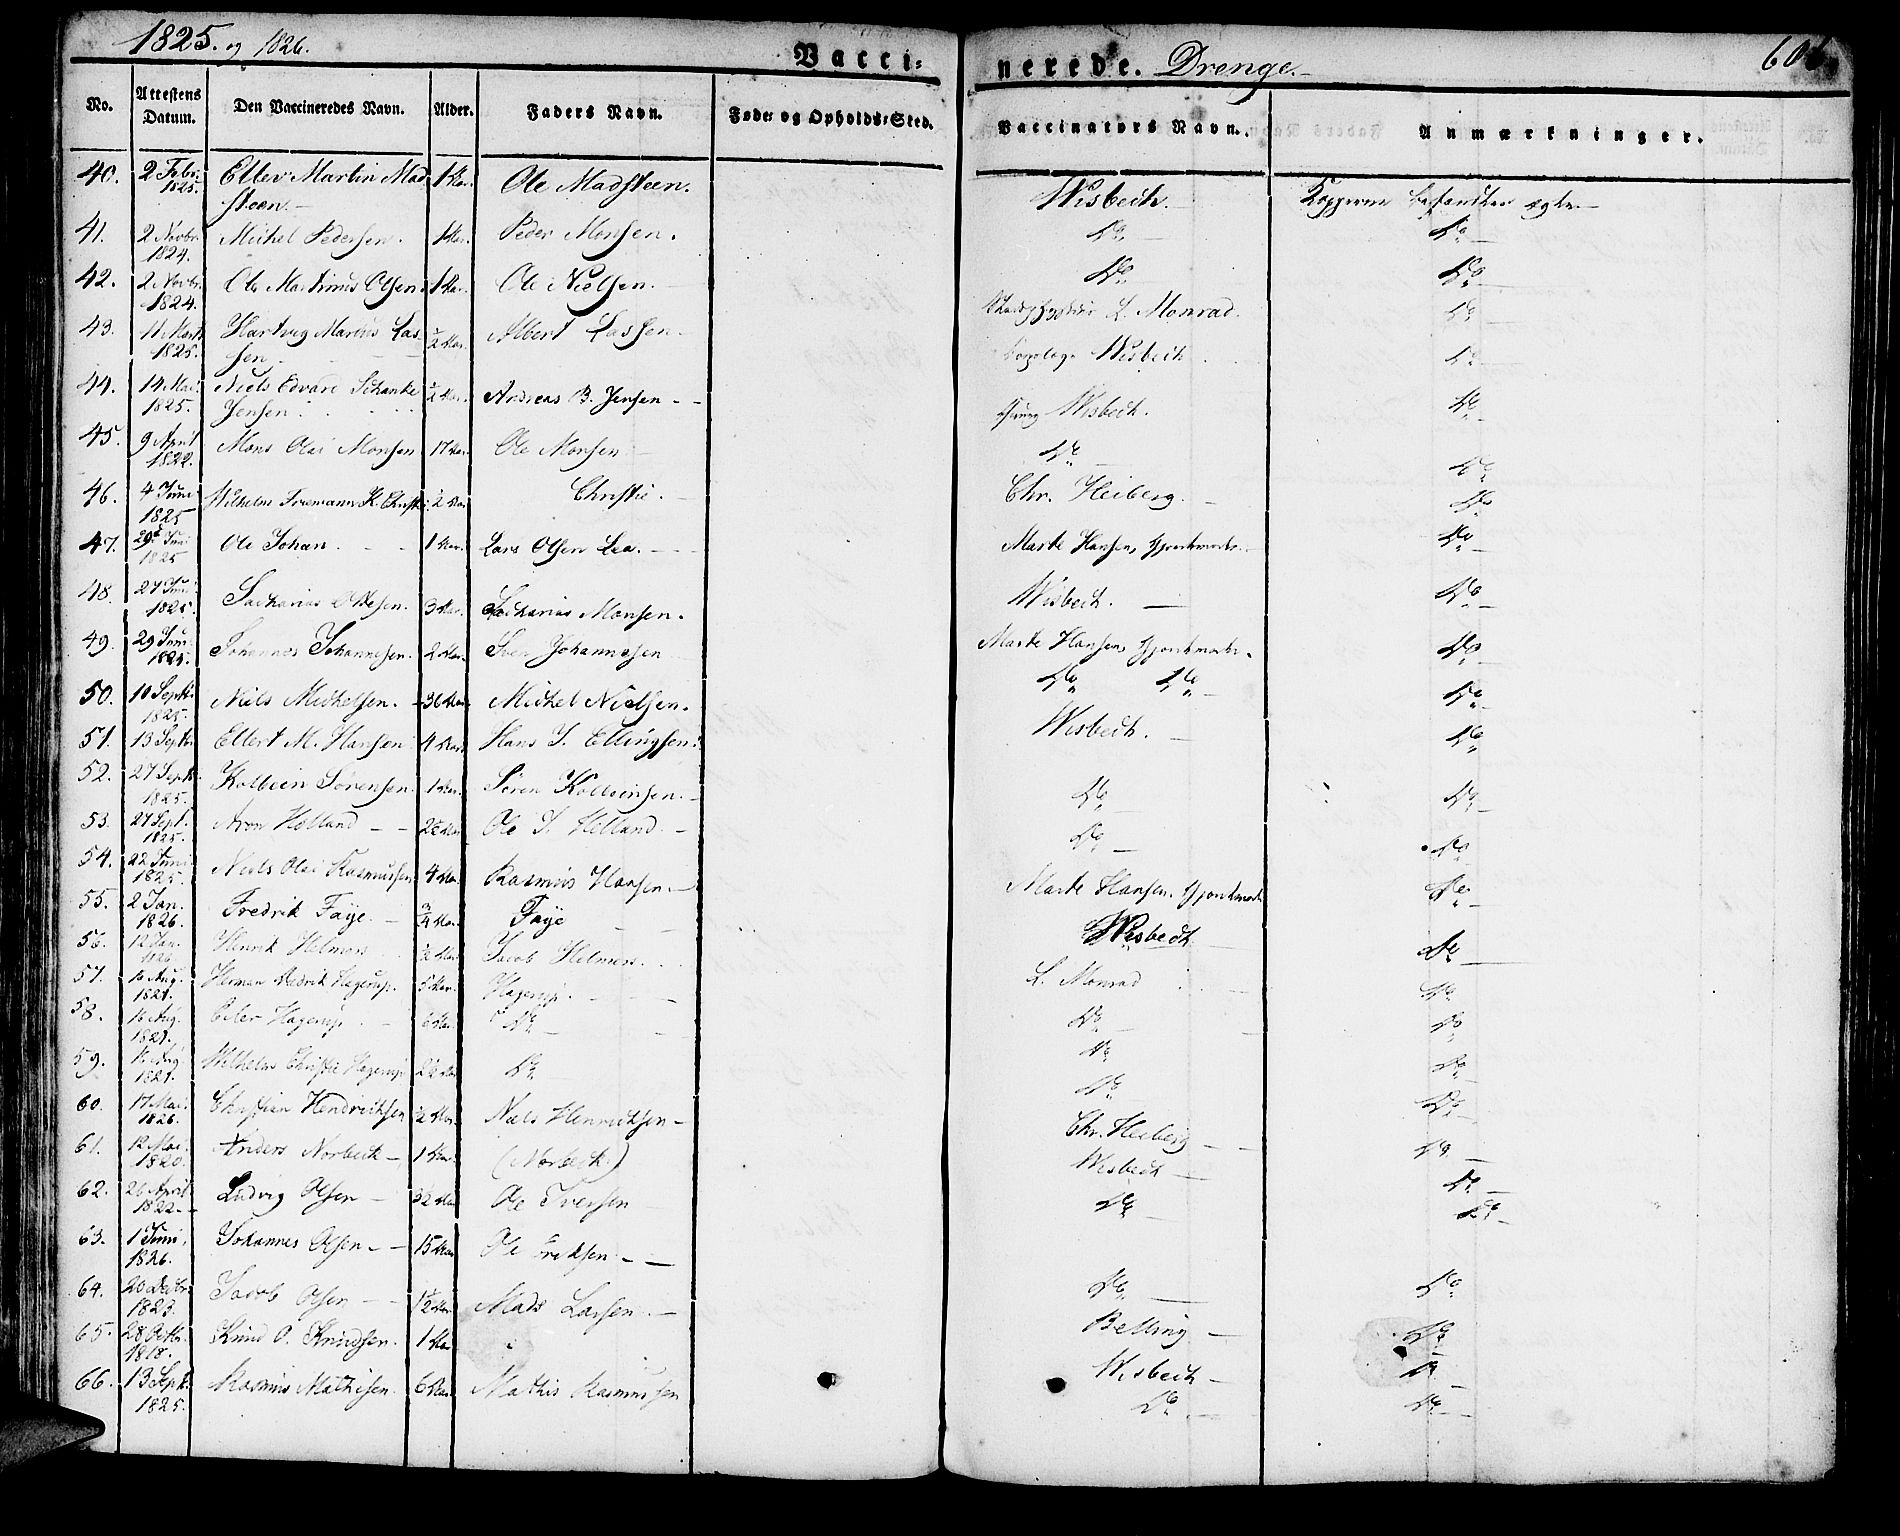 1825. og 1826.
Vacci=
nerede. Drenge.
No.
Attestens Datum.
Den Vaccineredes Navn.
Alder.
Faders Navn.
Føde- og Opholds-Sted.
Vaccinators Navn.
Anmærkninger.
40. 2 Febr. 1825. Ellev Martin Mad- 1 Aar. Ole Madsteen. Wisbech. Kopperne befandtes ægte.
steen.
41. 2 Novbr. 1824. Michel Pedersen. 1 Aar. Peder Monsen. Do. Do.
42. 2 Novbr. 1824. Ole Martinus Olsen 1 Aar. Ole Nielsen. Do. Do.
43. 11 Marts 1825. Hartvig Martus Las- ½ Aar. Albert Lassen. L. Monrad. Do.
sen. Wisbech Do.
44. 14 Mai 1825. Niels Edvard Schanke ½ Aar. Andreas B. Jensen Wisbech. Do.
Jensen.
45. 9 April 1822. Mons Olai Monsen 17 Aar. Ole Monsen Do. Do.
46. 4 Juni 1825 Wilhelm Friemann K. Christie ½ Aar Christie. Chr. Heiberg. Do.
47. 29 Juni 1825 Ole Johan. 1 Aar. Lars Olsen Lea. Marte Hansen, Gjordemoder. Do.
48. 27 Juni 1825. Zacharias 3 Aar. Zacharias Monsen. Wisbech. Do.
49. 29 Juni 1825. Johannes Johannesen. 2 Aar. Iver Johannesen Marte Hansen, Gjordemoder. Do.
50. 10 Septbr. 1825. Niels Michelsen. 36 Aar. Michel Nielsen. Do. Do. Do.
51. 13 Septbr. Ellert M. Hansen 4 Aar. Hans J. Ellingsen. Wisbech. Do.
52. 27 Septbr. 1825. Kolbein Sørensen. 1 Aar. Søren Kolbeinsen. Do. Do.
53. 27 Sept. 1825. Aron Helland 2½ Aar. Ole J. Helland. Do. Do.
54. 22 Juni 1825. Niels Olai Rasmussen 4 Aar. Rasmus Hansen. Marte Hansen. Gjordemoder Do.
55. 2 Jan. 1826. Fredrik Faye. ¾ Aar. Faye Wisbech Do.
56. 12 Jan. 1826 Henrik Helmers ½ Aar. Jacob Helmers. L. Monrad Do.
57. 16 Aug. 1821. Herman Fredrik Hagerup. 5 Aar. Hagerup. Do. Do.
58. 16 Aug. 1821. Peter Hagerup 6 Aar. Do. Do. Do.
59. 16 Aug. 1821. Wilhelm Christie Hagerup 2½ Aar Do. Do. Do.
60. 17 Mai. 1826. Christian Hendricksen ½ Aar. Niels Henricksen Chr. Heiberg Do.
61. 12 Mai. 1820. Anders Norbeck 1 Aar. (Norbeck.) Wisbech Do.
62. 26 April 1822. Ludvig Olsen 3½ Aar Ole Iversen Do. Do.
63. 1 Juni. 1826. Johannes Olsen 15 Aar Ole Eriksen. Do.
64. 20 Decbr. 1823. Jacob Olsen 1½ Aar. Mads Larsen. Do. Do.
65. 28 Octbr. 1818. Knud O. Knudsen. 1 Aar Belling Do.
66. 13 Septbr. 1825. Rasmus Mathisen. 6 Aar. Mathis Rasmussen Wisbech Do.
Do. Do.